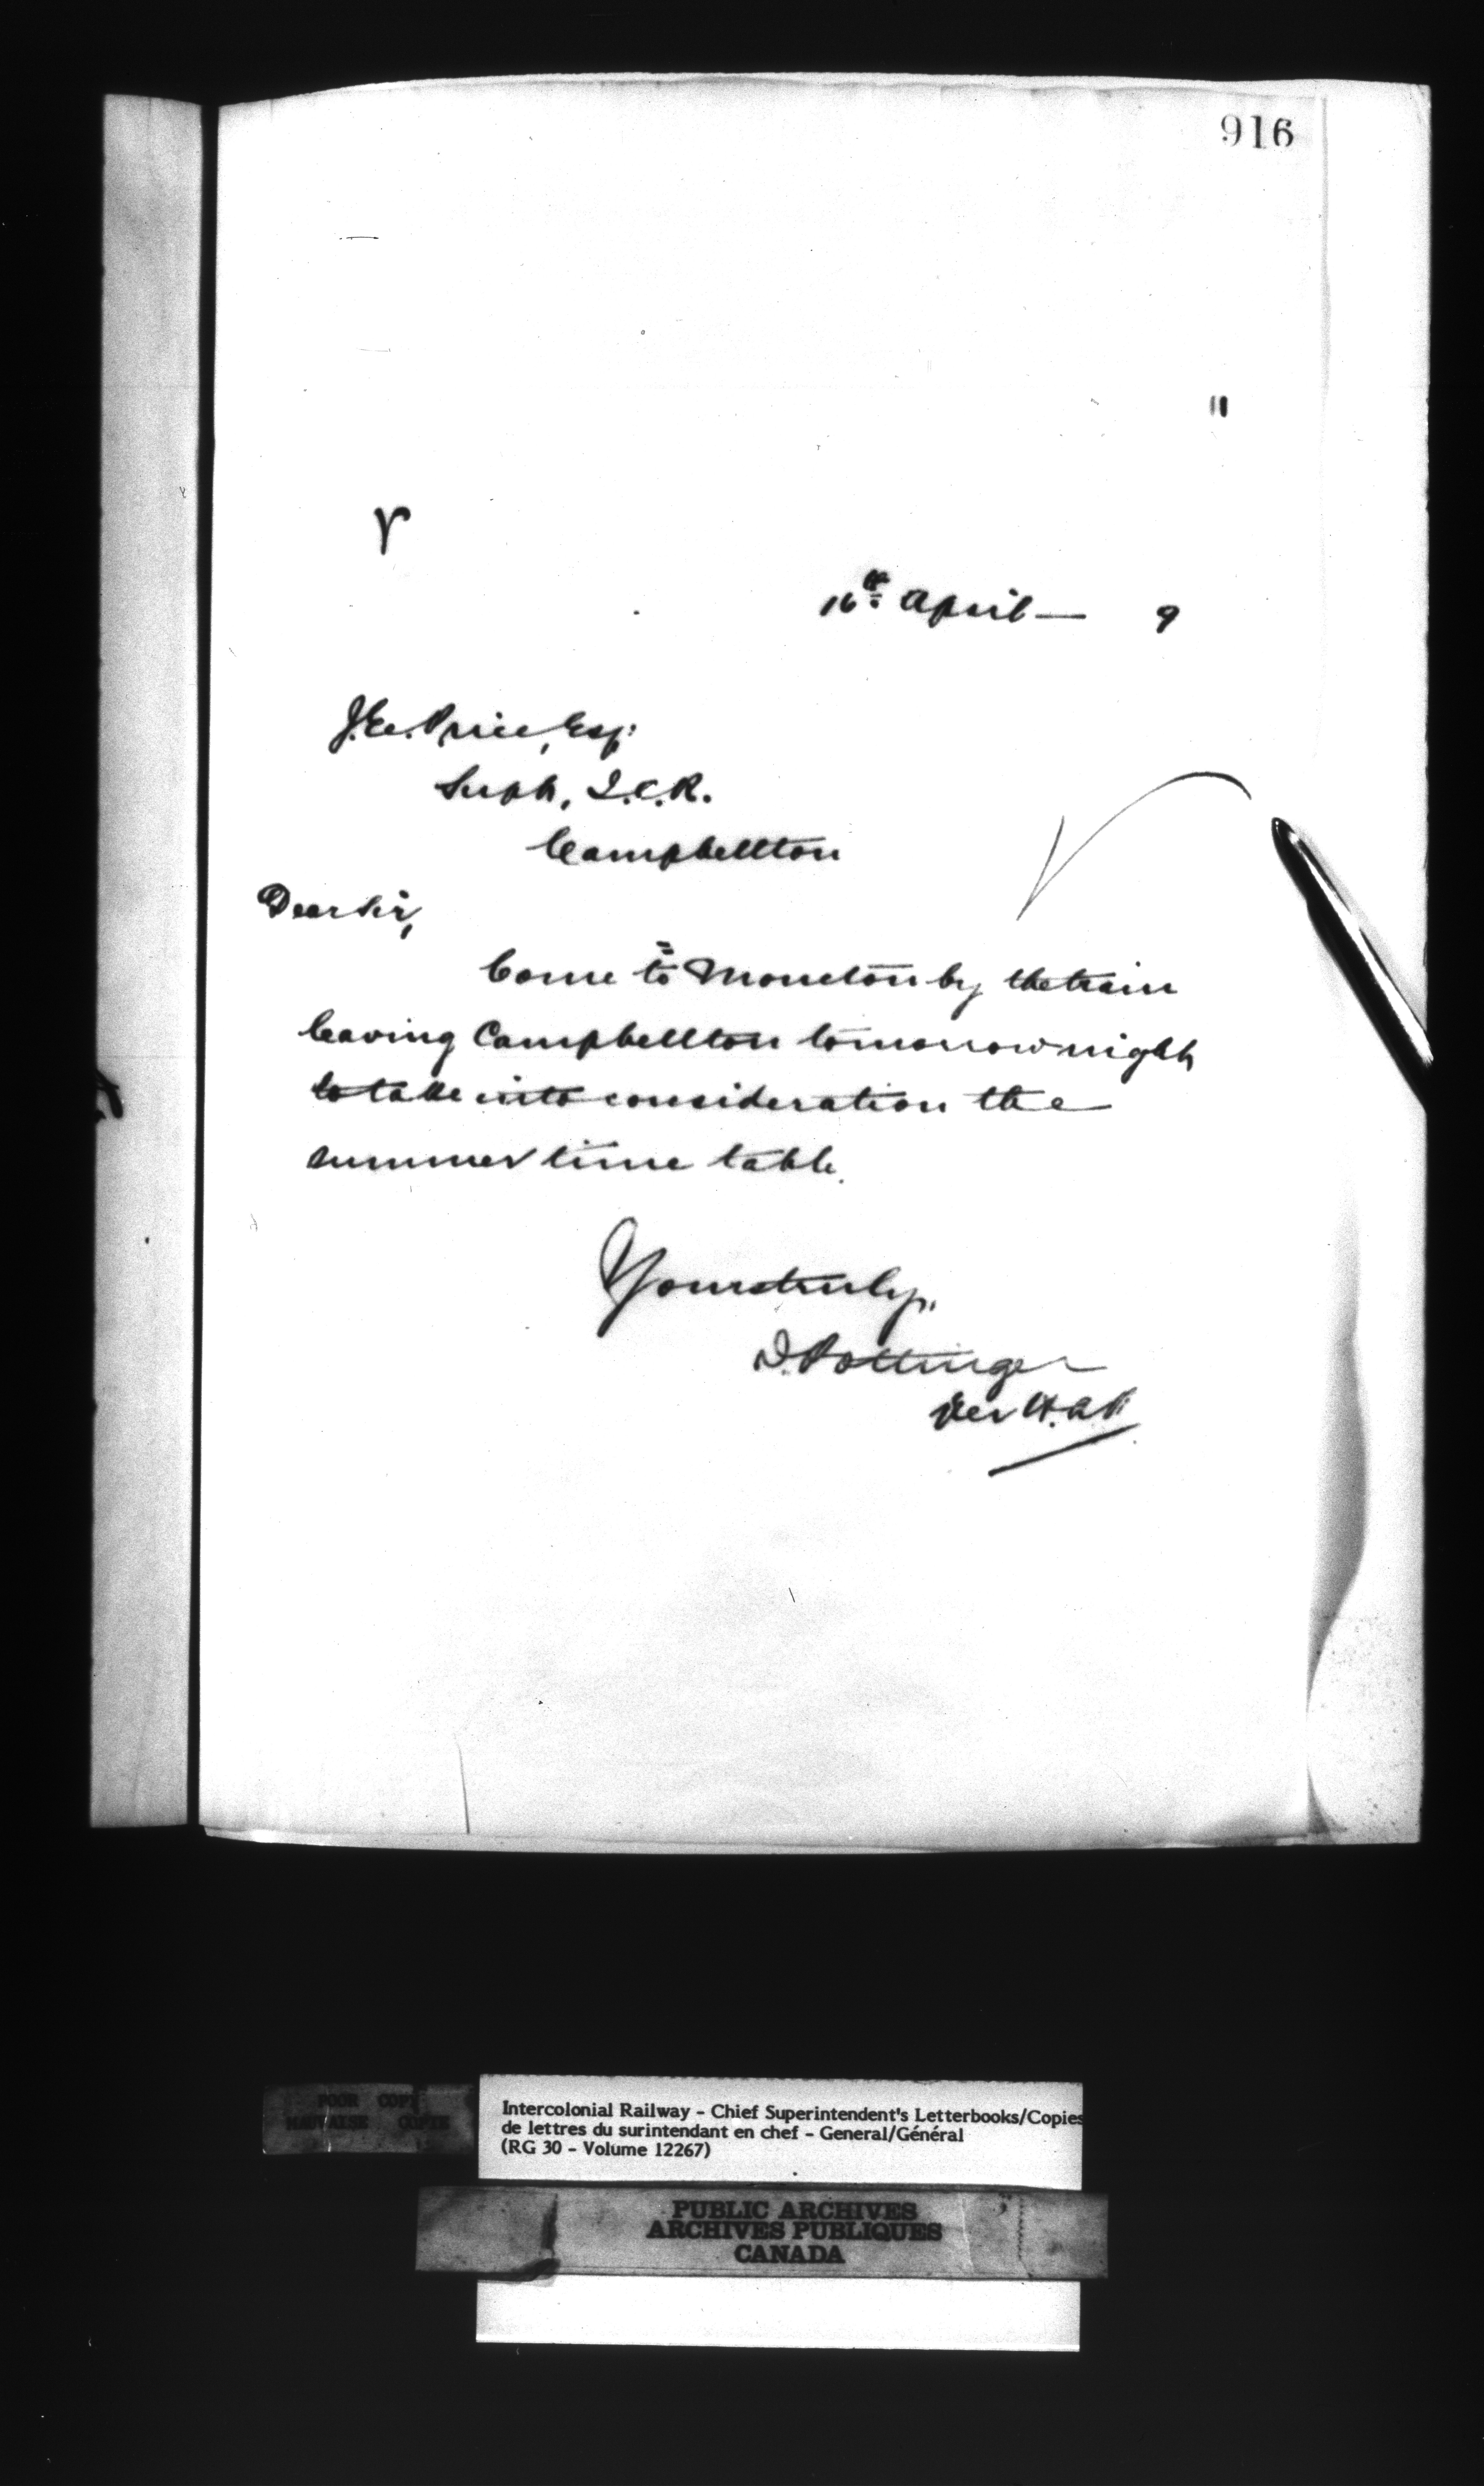 916
16th April — 9
J.E. Price, Esq:
Supt, I.C.R.
Campbellton
Dear Sir,
Come to Moncton by the train
leaving Campbellton tomorrow night
to take into consideration the
summer time table.
Yours truly,
D. Pottinger
Per
POOR COPY
MAUVAISE COPIE
Intercolonial Railway - Chief Superintendent's Letterbooks/Copies
de lettres du surintendant en chef - General/Général
(RG 30 - Volume 12267)
PUBLIC ARCHIVES
ARCHIVES PUBLIQUES
CANADA